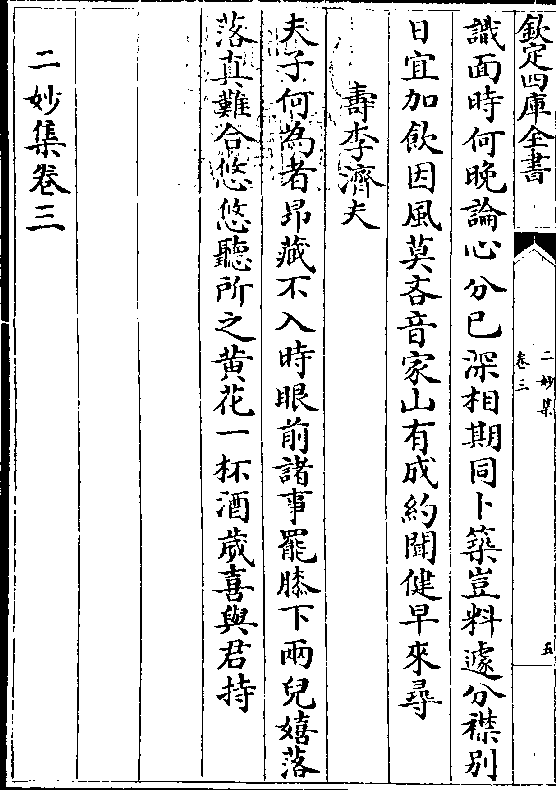 欽定四庫全書
二妙集
卷三
五
識面時何晚論心分已深相期同卜築豈料遽分襟别
日宜加飲因風莫吝音家山有成約聞健早來尋
壽李濟夫
夫子何為者昂藏不入時眼前諸事罷膝下兩兒嬉落
落真難合悠悠聽所之黄花一杯酒歳喜與君持
二妙集卷三